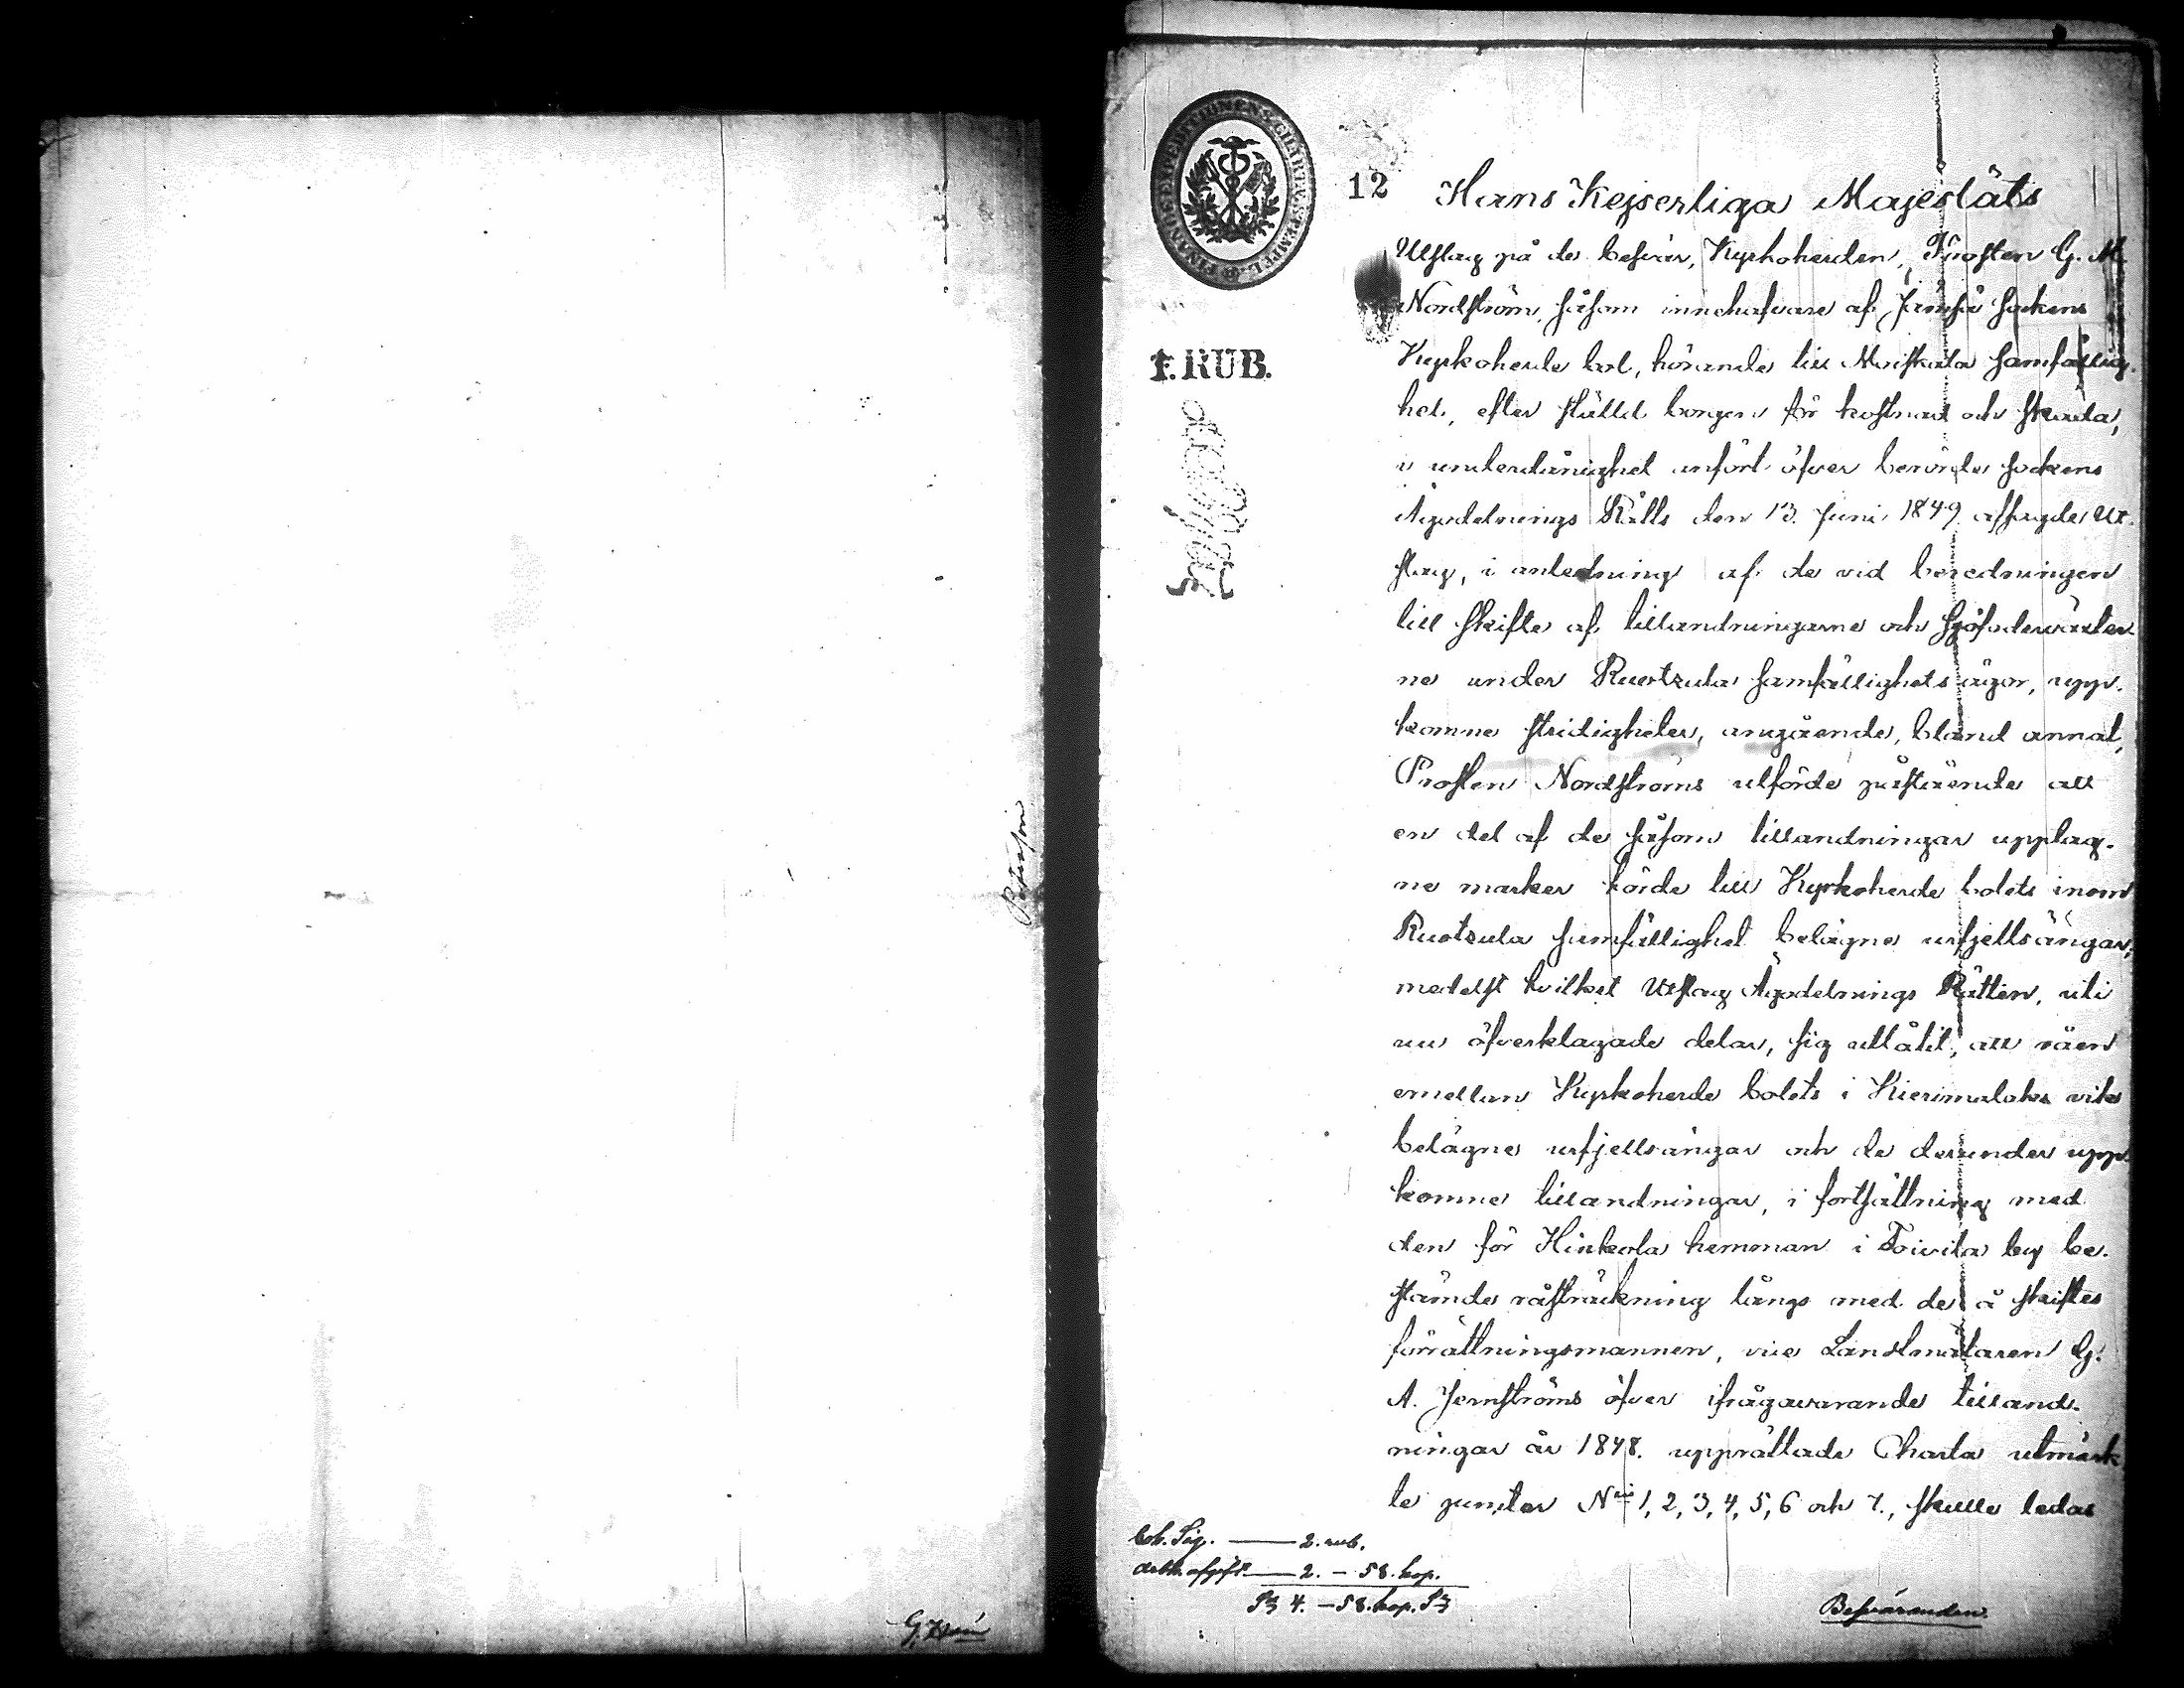 Petersson
G.
FINANCE EXPEDITIONENS CHARTÆ STEMPEL
12
1. RUB.
Hans Kejserliga Majestäts
Utslag på de besvär, Kyrkoherden, Prosten G. M.
Nordström, såsom innehafvare af Jämsä sockens
Kyrkoherde bol, hörande till Moiskala samfällig-
het, efter ställd borgen för kostnad och skada,
i underdånighet anfört öfver berörde sockens
Ägodelnings Rätts den 13. Juni 1849 afsagde Ut-
slag, i anledning af de vid beredningen
till skifte af tillandningarne och sjöfoderväxter-
ne under Ruotsula samfällighets ägor, upp-
komne stridigheter, angående, bland annat,
Prosten Nordströms utförde påstående att
en del af de såsom tillandningar upptag-
ne marker hörde till Kyrkoherde bolets inom
Ruotsula samfällighet belägne urfjellsängar;
medelst hvilket Utslag Ägodelnings Rätten, uti
nu öfverklagade delar, sig utlåtit, att råen
emellan Kyrkoherde bolets i vik
belägne urfjellsängar och de derunder upp-
komne tillandningar, i fortsättning med
den för Hinkola hemman i Toivila by be-
stämde råsträckning längs med de å skiftes
förrättningsmannen, vice Landtmätaren G.
A. Jernströms öfver ifrågavarande tilland-
ningar år 1848. upprättade Charta utmärk-
te puncter N:ris 1, 2, 3, 4, 5, 6 och 7., skulle ledas
Coh. Sig. — 2. rub.
afgift — 2. – 58. kop.
S:r 4. – 58. kop. S:r
Besväranden.